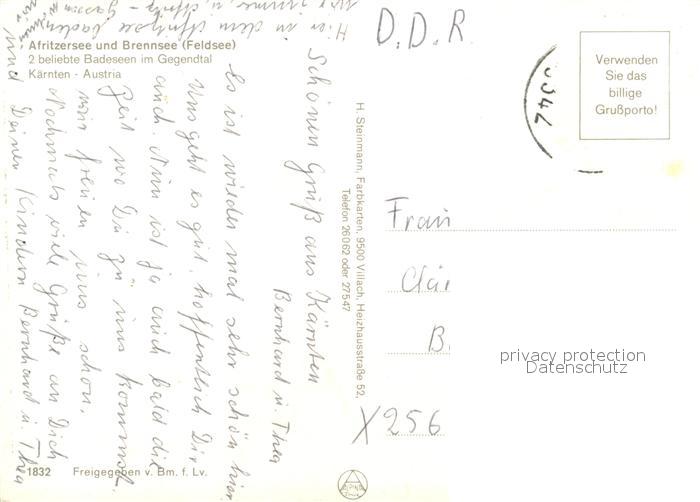 Hier in dem Afritzer
Afritzersee und Brennsee (Feldsee)
2 beliebte Badeseen im Gegendtal
Kärnten - Austria
Schönen Gruß aus Kärnten
Bernhard u. Thea
Es ist wieder mal sehr schön hier
Uns geht es gut, hoffentlich Dir
auch. Nun ist ja auch bald die
Zeit wo Du zu uns kommst.
wir freuen uns schon.
Nochmals viele Grüße an Dich
und Deinen Kindern Bernhard u. Thea
1832 Freigegeben v. Bm. f. Lv.
H. Steinmann, Farbkarten, 9500 Villach, Heizhausstraße 52,
Telefon 26062 oder 27547
D.D.R.
Verwenden
Sie das
billige
Grußporto!
Frau
B.
X256
privacy protection
Datenschutz